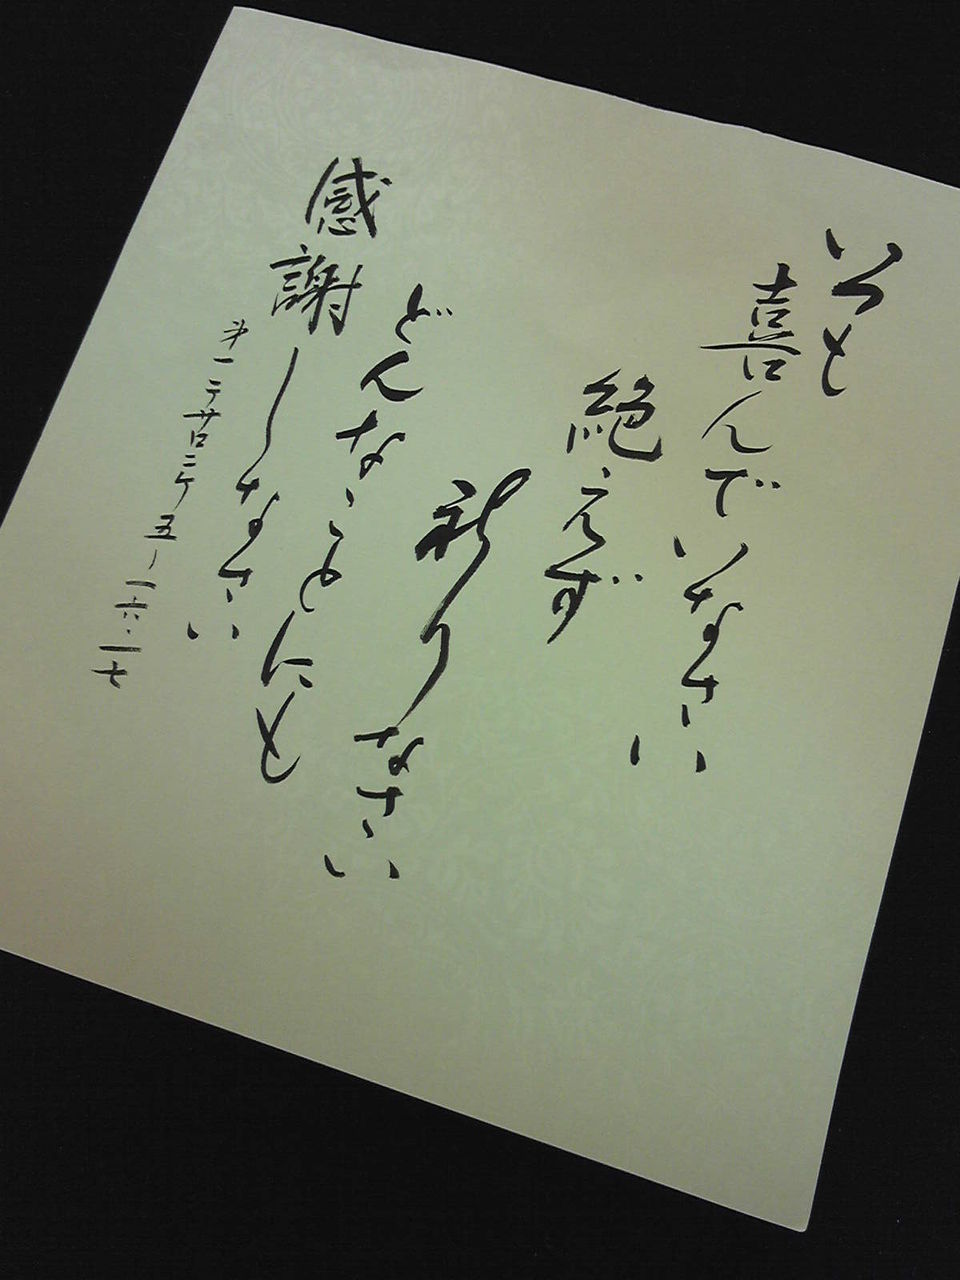 いつも
喜んでいなさい
絶えず
祈りなさい
どんなことにも
感謝しなさい
第一テサロニケ五〜一六・一七